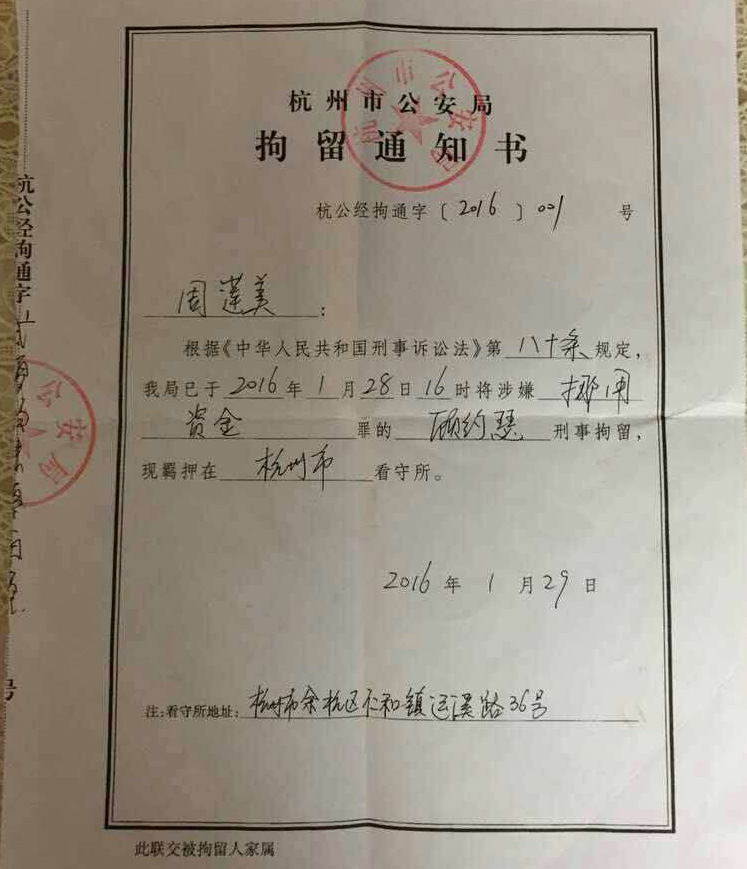 杭州市公安局
拘留通知书
杭公经拘通字〔2016〕001号
周莲美：
根据《中华人民共和国刑事诉讼法》第八十条规定，
我局已于2016年1月28日16时将涉嫌挪用
资金罪的顾约瑟刑事拘留，
现羁押在杭州市看守所。
2016年1月29日
注:看守所地址:杭州市余杭区仁和镇运溪路36号
此联交被拘留人家属
杭公经拘通字
号
杭州市公安局
公安局